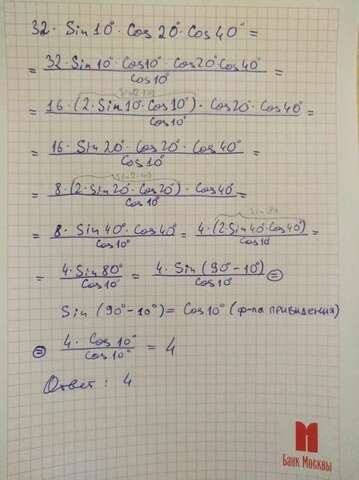 32 · Sin10° · Cos20° · Cos40° =
= 32 · Sin10° · Cos10° · Cos20° · Cos40° / Cos10° =
= 16 · (2 · Sin10° · Cos10°) · Cos20° · Cos40° / Cos10° =
= 16 · Sin20° · Cos20° · Cos40° / Cos10° =
= 8 · (2 · Sin20° · Cos20°) · Cos40° / Cos10° =
= 8 · Sin40° · Cos40° / Cos10° = 4 · (2 · Sin40° · Cos40°) / Cos10° =
= 4 · Sin80° / Cos10° = 4 · Sin(90° - 10°) / Cos10° =
Sin(90° - 10°) = Cos10° (ф-ла привидения)
= 4 · Cos10° / Cos10° = 4
Ответ: 4
Банк Москвы